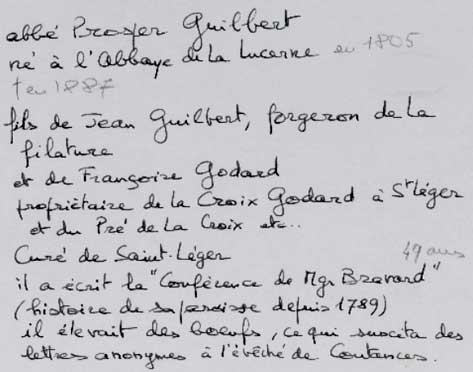 abbé Prosper Guilbert
né à l'Abbaye de La Lucerne en 1805
† en 1887
fils de Jean Guilbert, forgeron de La
filature
et de Françoise Godard
propriétaire de la Croix Godard à St Léger
et du Pré de La Croix etc..
Curé de Saint-Léger 49 ans
il a écrit la "Conférence de Mgr Bravard"
(histoire de sa paroisse depuis 1789)
il élevait des boeufs, ce qui suscita des
lettres anonymes à l'évêché de Coutances.